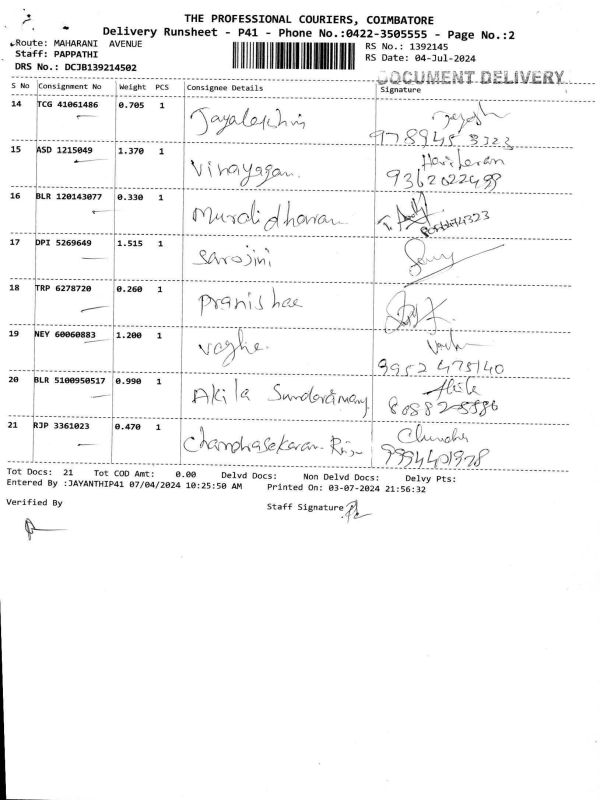 THE PROFESSIONAL COURIERS, COIMBATORE
Delivery Runsheet - P41 - Phone No.:0422-3505555 - Page No.:2
Route: MAHARANI AVENUE
RS No.: 1392145
Staff: PAPPATHI
RS Date: 04-Jul-2024
DRS No.: DCJB139214502
DOCUMENT DELIVERY
S No Consignment No Weight PCS Consignee Details Signature
14 TCG 41061486 0.705 1 Jayalakshmi
15 ASD 1215049 1.370 1 Vinayagan. Hariharan
9362022499
16 BLR 120143077 0.330 1 Muralidharan
17 DPI 5269649 1.515 1 Sarojini
18 TRP 6278720 0.260 1 Pranishae
19 NEY 60060883 1.200 1 Vaghe.
9952 475140
20 BLR 5100950517 0.990 1 Akila
21 RJP 3361023 0.470 1 Chandhasekaran
Tot Docs: 21 Tot COD Amt: 0.00 Delvd Docs: Non Delvd Docs: Delvy Pts:
Entered By :JAYANTHIP41 07/04/2024 10:25:50 AM Printed On: 03-07-2024 21:56:32
Verified By
Staff Signature